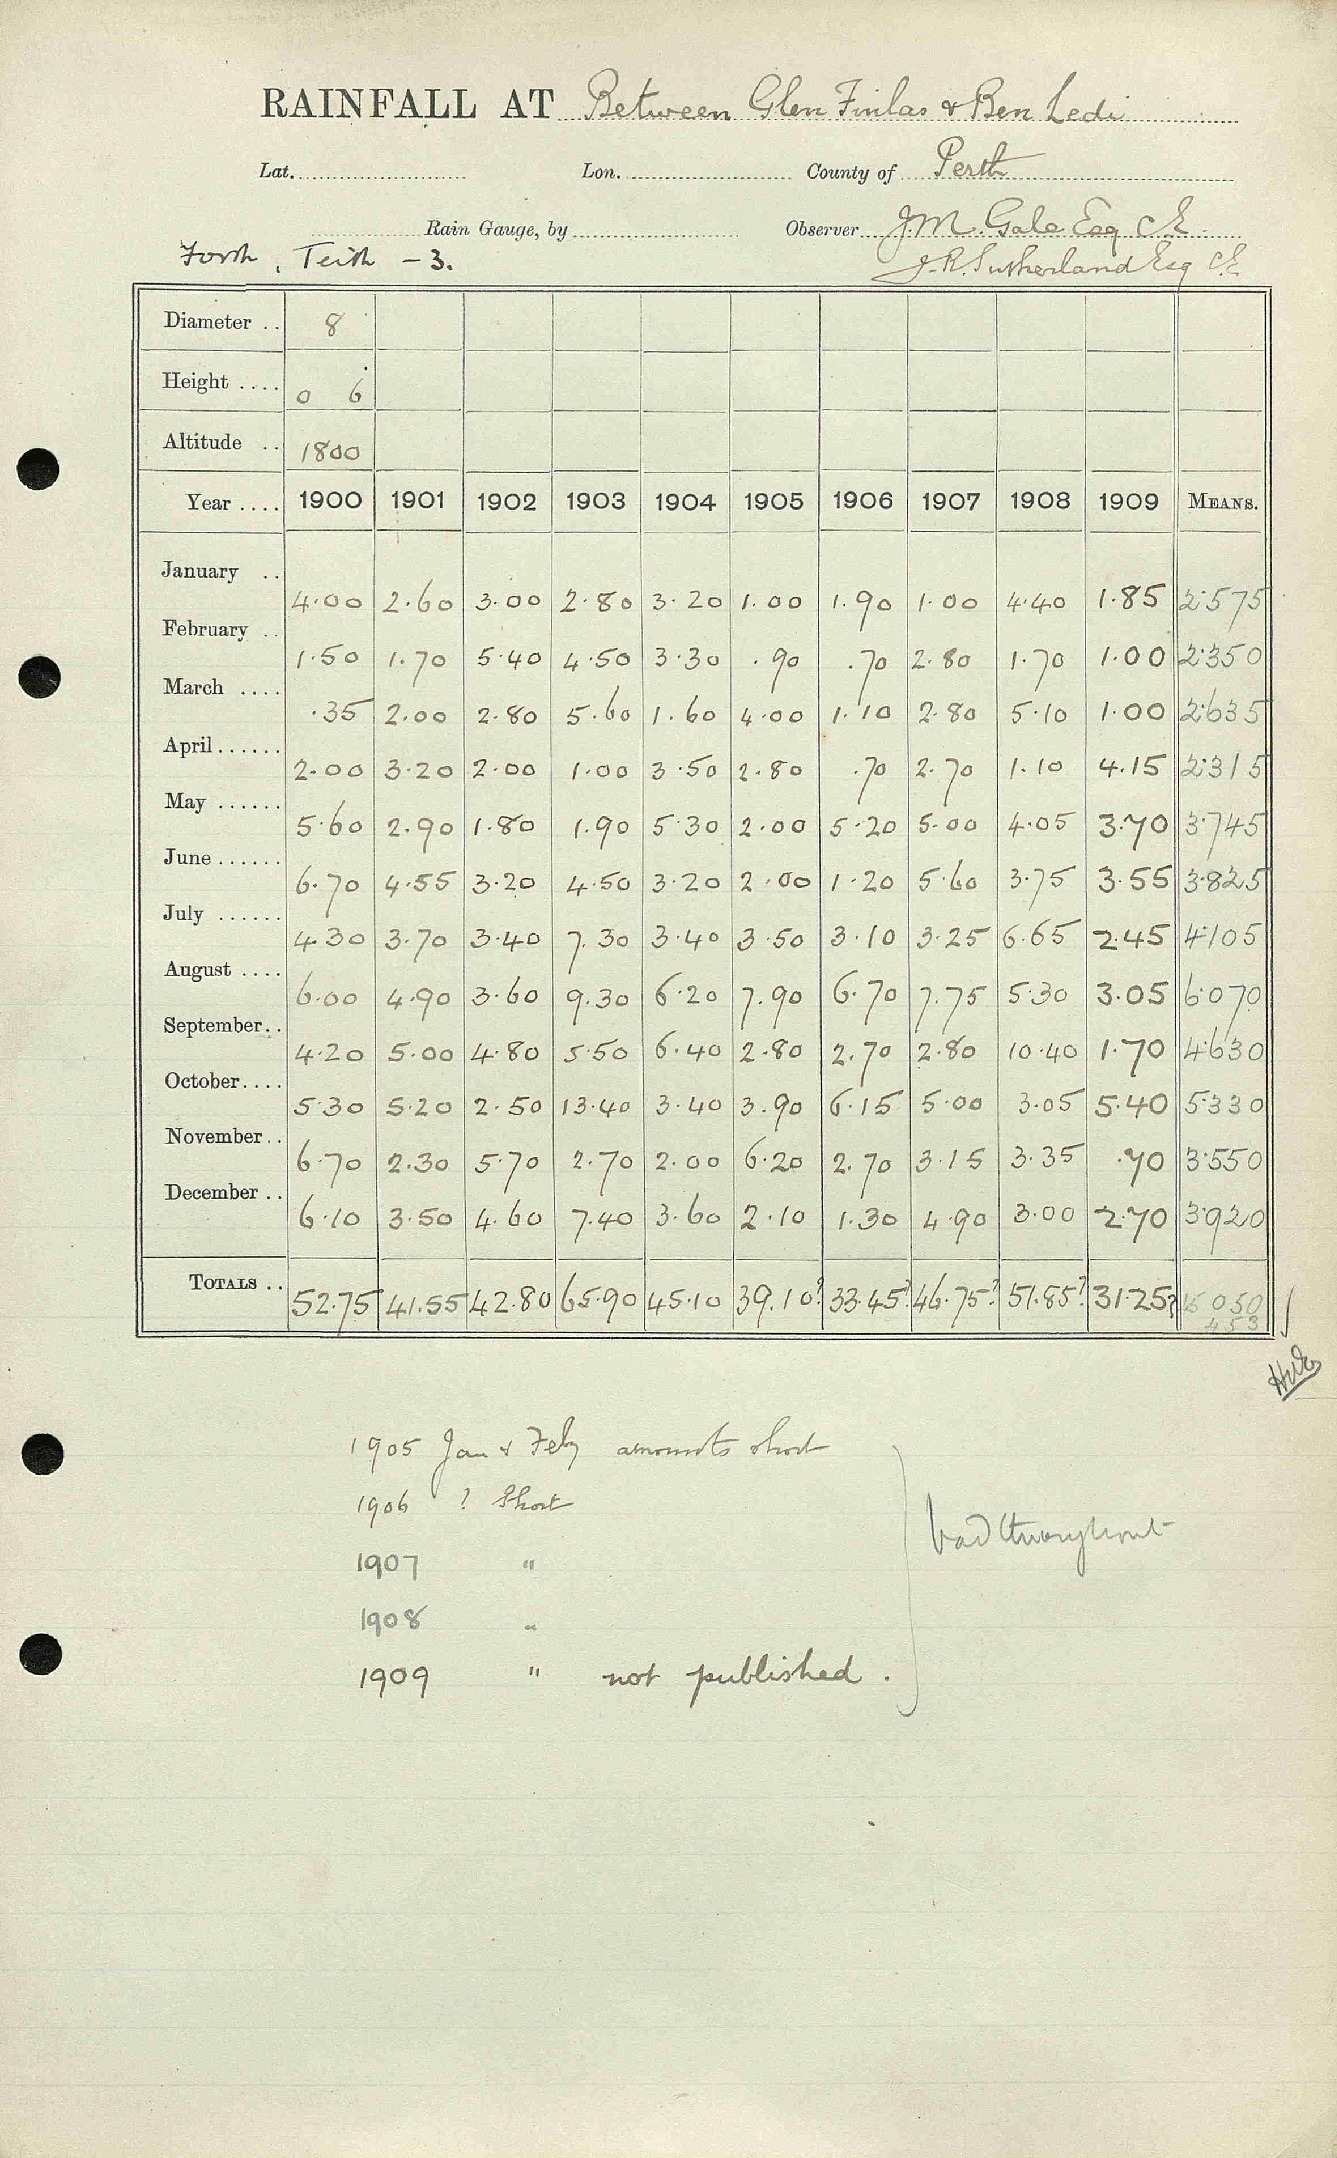 RAINFALL AT Between Glen Finlas & Ben Ledi
Lat. Lon. County of Perth
Rain Gauge, by Observer J. M. Gale Esq C E
Forth, Teith - 3. J. R. Sutherland Esq C.E
Diameter .. 8
Height .... 0 6
Altitude .. 1800
Year .... 1900 1901 1902 1903 1904 1905 1906 1907 1908 1909 MEANS.
January .. 4.00 2.60 3.00 2.80 3.20 1.00 1.90 1.00 4.40 1.85 2.575
February .. 1.50 1.70 5.40 4.50 3.30 .90 .70 2.80 1.70 1.00 2.350
March .... .35 2.00 2.80 5.60 1.60 4.00 1.10 2.80 5.10 1.00 2.635
April ...... 2.00 3.20 2.00 1.00 3.50 2.80 .70 2.70 1.10 4.15 2.315
May ...... 5.60 2.90 1.80 1.90 5.30 2.00 5.20 5.00 4.05 3.70 3.745
June ...... 6.70 4.55 3.20 4.50 3.20 2.00 1.20 5.60 3.75 3.55 3.825
July ...... 4.30 3.70 3.40 7.30 3.40 3.50 3.10 3.25 6.65 2.45 4.105
August .... 6.00 4.90 3.60 9.30 6.20 7.90 6.70 7.75 5.30 3.05 6.070
September.. 4.20 5.00 4.80 5.50 6.40 2.80 2.70 2.80 10.40 1.70 4.630
October.... 5.30 5.20 2.50 13.40 3.40 3.90 6.15 5.00 3.05 5.40 5.330
November.. 6.70 2.30 5.70 2.70 2.00 6.20 2.70 3.15 3.35 .70 3.550
December .. 6.10 3.50 4.60 7.40 3.60 2.10 1.30 4.90 3.00 2.70 3.920
TOTALS .. 52.75 41.55 42.80 65.90 45.10 39.10? 33.45? 46.75? 51.85? 31.25? 45 050
453
1905 Jan & Feby amounts short
1906 ? Short
bad throughout
1907 "
1908 "
1909 " not published.